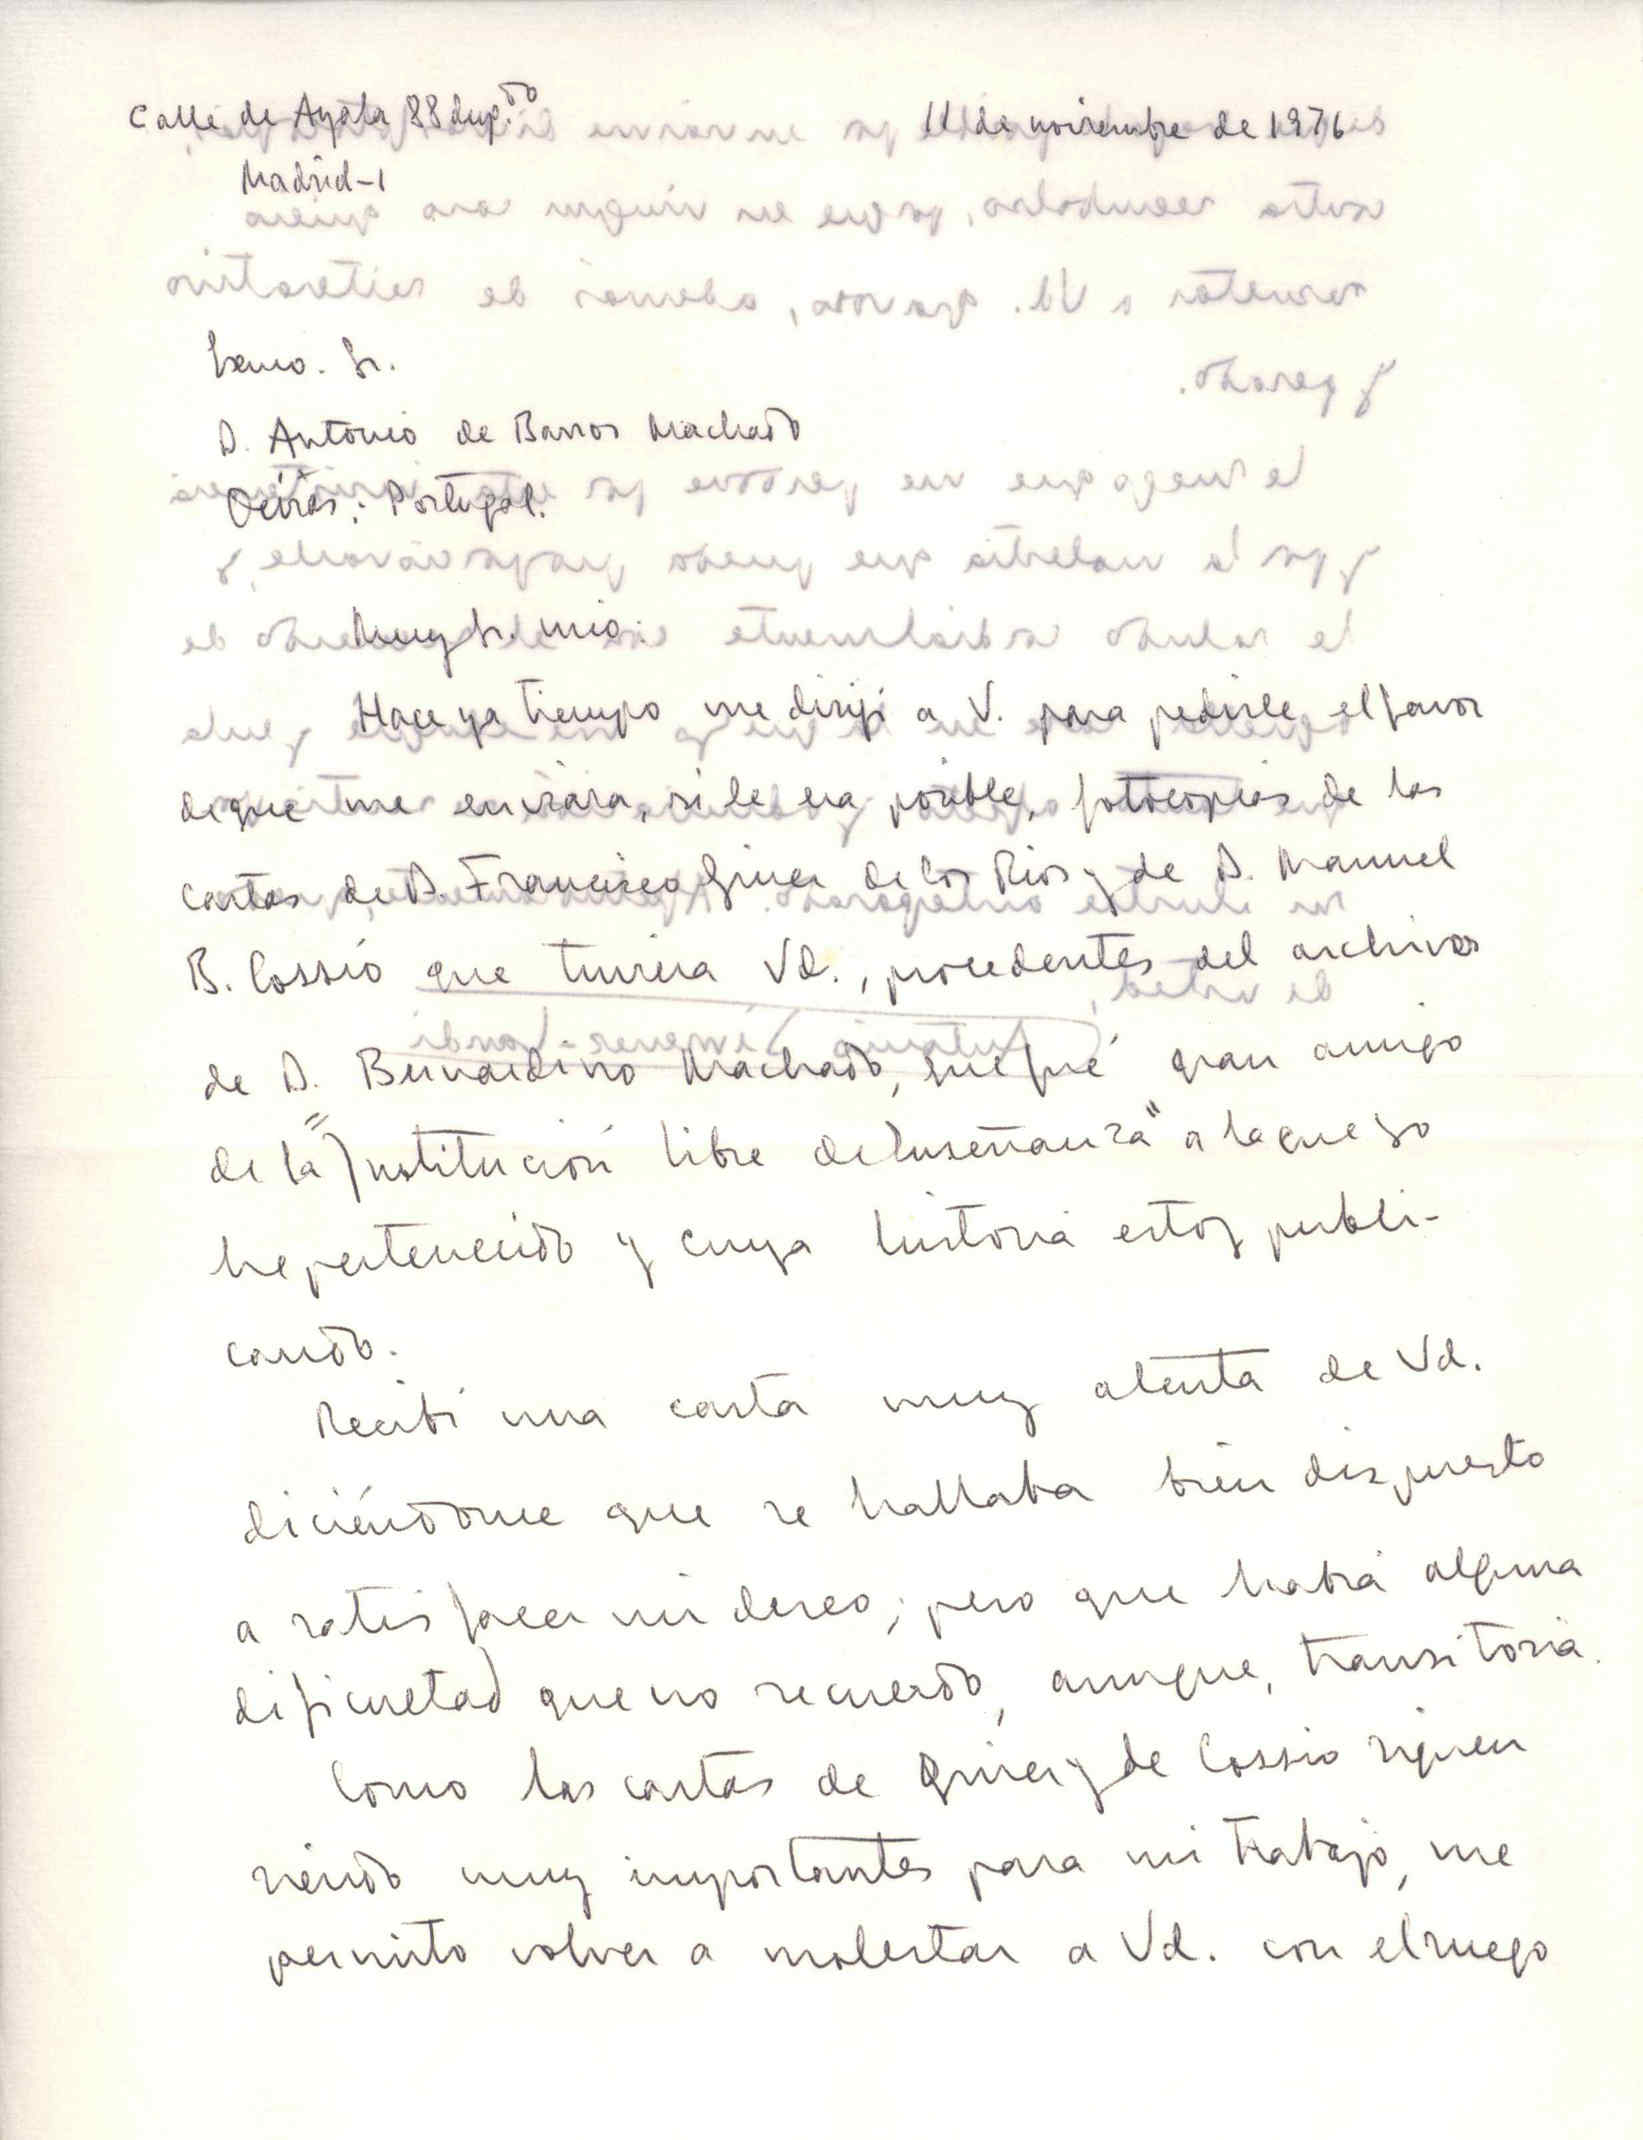 Calle de Ayala 88 dup.do
11 de noviembre de 1976
Madrid-1
Excmo. Sr.
D. Antonio de Barros Machado
Oeiras: Portugal.
Muy Sr. mio:
Hace ya tiempo me dirijí a V. para pedirle el favor
de que me enviara, si le era posible, fotocopias de las
cartas de D. Francisco Giner de los Rios y de D. Manuel
B. Cossío que tuviera Vd., procedentes del archivo
de D. Bernardino Machado, que fué gran amigo
de la "Institución libre de Enseñanza" a la que yo
he pertenecido y cuya historia estoy publi-
cando.
Recibí una carta muy atenta de Vd.
diciéndome que se hallaba bien dispuesto
a satisfacer mi deseo; pero que había alguna
dificultad que no recuerdo, aunque, transitoria.
Como las cartas de Giner y de Cossio siguen
siendo muy importantes para mi trabajo, me
permito volver a molestar a Vd. con el ruego